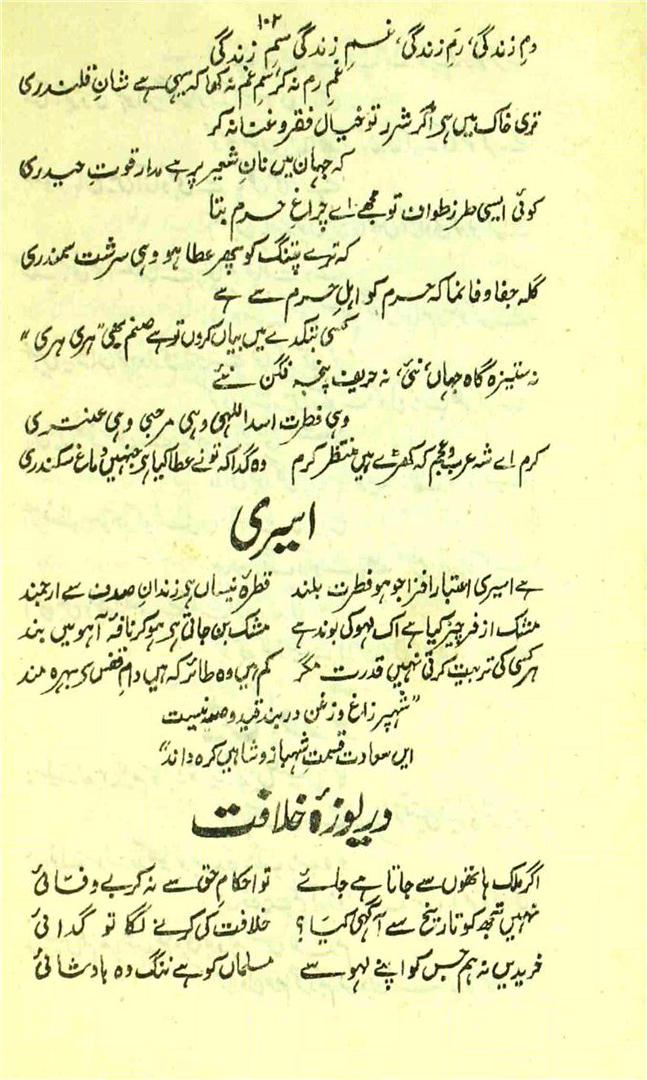 ۱۰۲
دمِ زندگی، رمِ زندگی، غمِ زندگی سمِ زندگی
غمِ رم نہ کر، سمِ غم نہ کھا کہ یہی ہے شانِ قلندری
تری خاک میں ہے اگر شرر تو خیالِ فقر و غنا نہ کر
کہ جہاں میں نانِ شعیر پر ہے مدارِ قوتِ حیدری
کوئی ایسی طرزِ طواف تو مجھے اے چراغِ حرم بتا
کہ ترے پتنگ کو پھر عطا ہو وہی سرشتِ سمندری
گلہ جفا وفا نما کہ حرم کو اہلِ حرم سے ہے
کسی بتکدے میں بیاں کروں تو ہے صنم بھی "ہری ہری"
نہ ستیزہ گاہِ جہاں نئی، نہ حریف پنجہ فگن نئے
وہی فطرت اسد اللہی وہی مرحبی وہی عنتری
کرم اے شہِ عرب و عجم کہ کھڑے ہیں منتظرِ کرم وہ گدا کہ تو نے عطا کیا ہے جنہیں دماغِ سکندری
اسیری
ہے اسیری اعتبار افزا جو ہو فطرت بلند قطرۂ نیساں ہے زندانِ صدف سے ارجمند
مشک از فر چیز کیا ہے اک لہو کی بوند ہے مشک بن جاتی ہے ہو کر نافۂ آہو میں بند
ہر کسی کی تربیت کرتی نہیں قدرت مگر کم ہیں وہ طائر کہ ہیں دام و قفس سے بہرہ مند
"شہپرِ زاغ و زغن در بند قید و صید نیست
ایں سعادت قسمتِ شہباز و شاہیں کردہ داند"
دریوزۂ خلافت
اگر ملک ہاتھوں سے جاتا ہے جائے تو احکامِ حق سے نہ کر بے وفائی
نہیں تجھ کو تاریخ سے آگہی کیا؟ خلافت کی کرنے لگا تو گدائی
خریدیں نہ ہم جس کو اپنے لہو سے مسلماں کو ہے ننگ وہ بادشائی